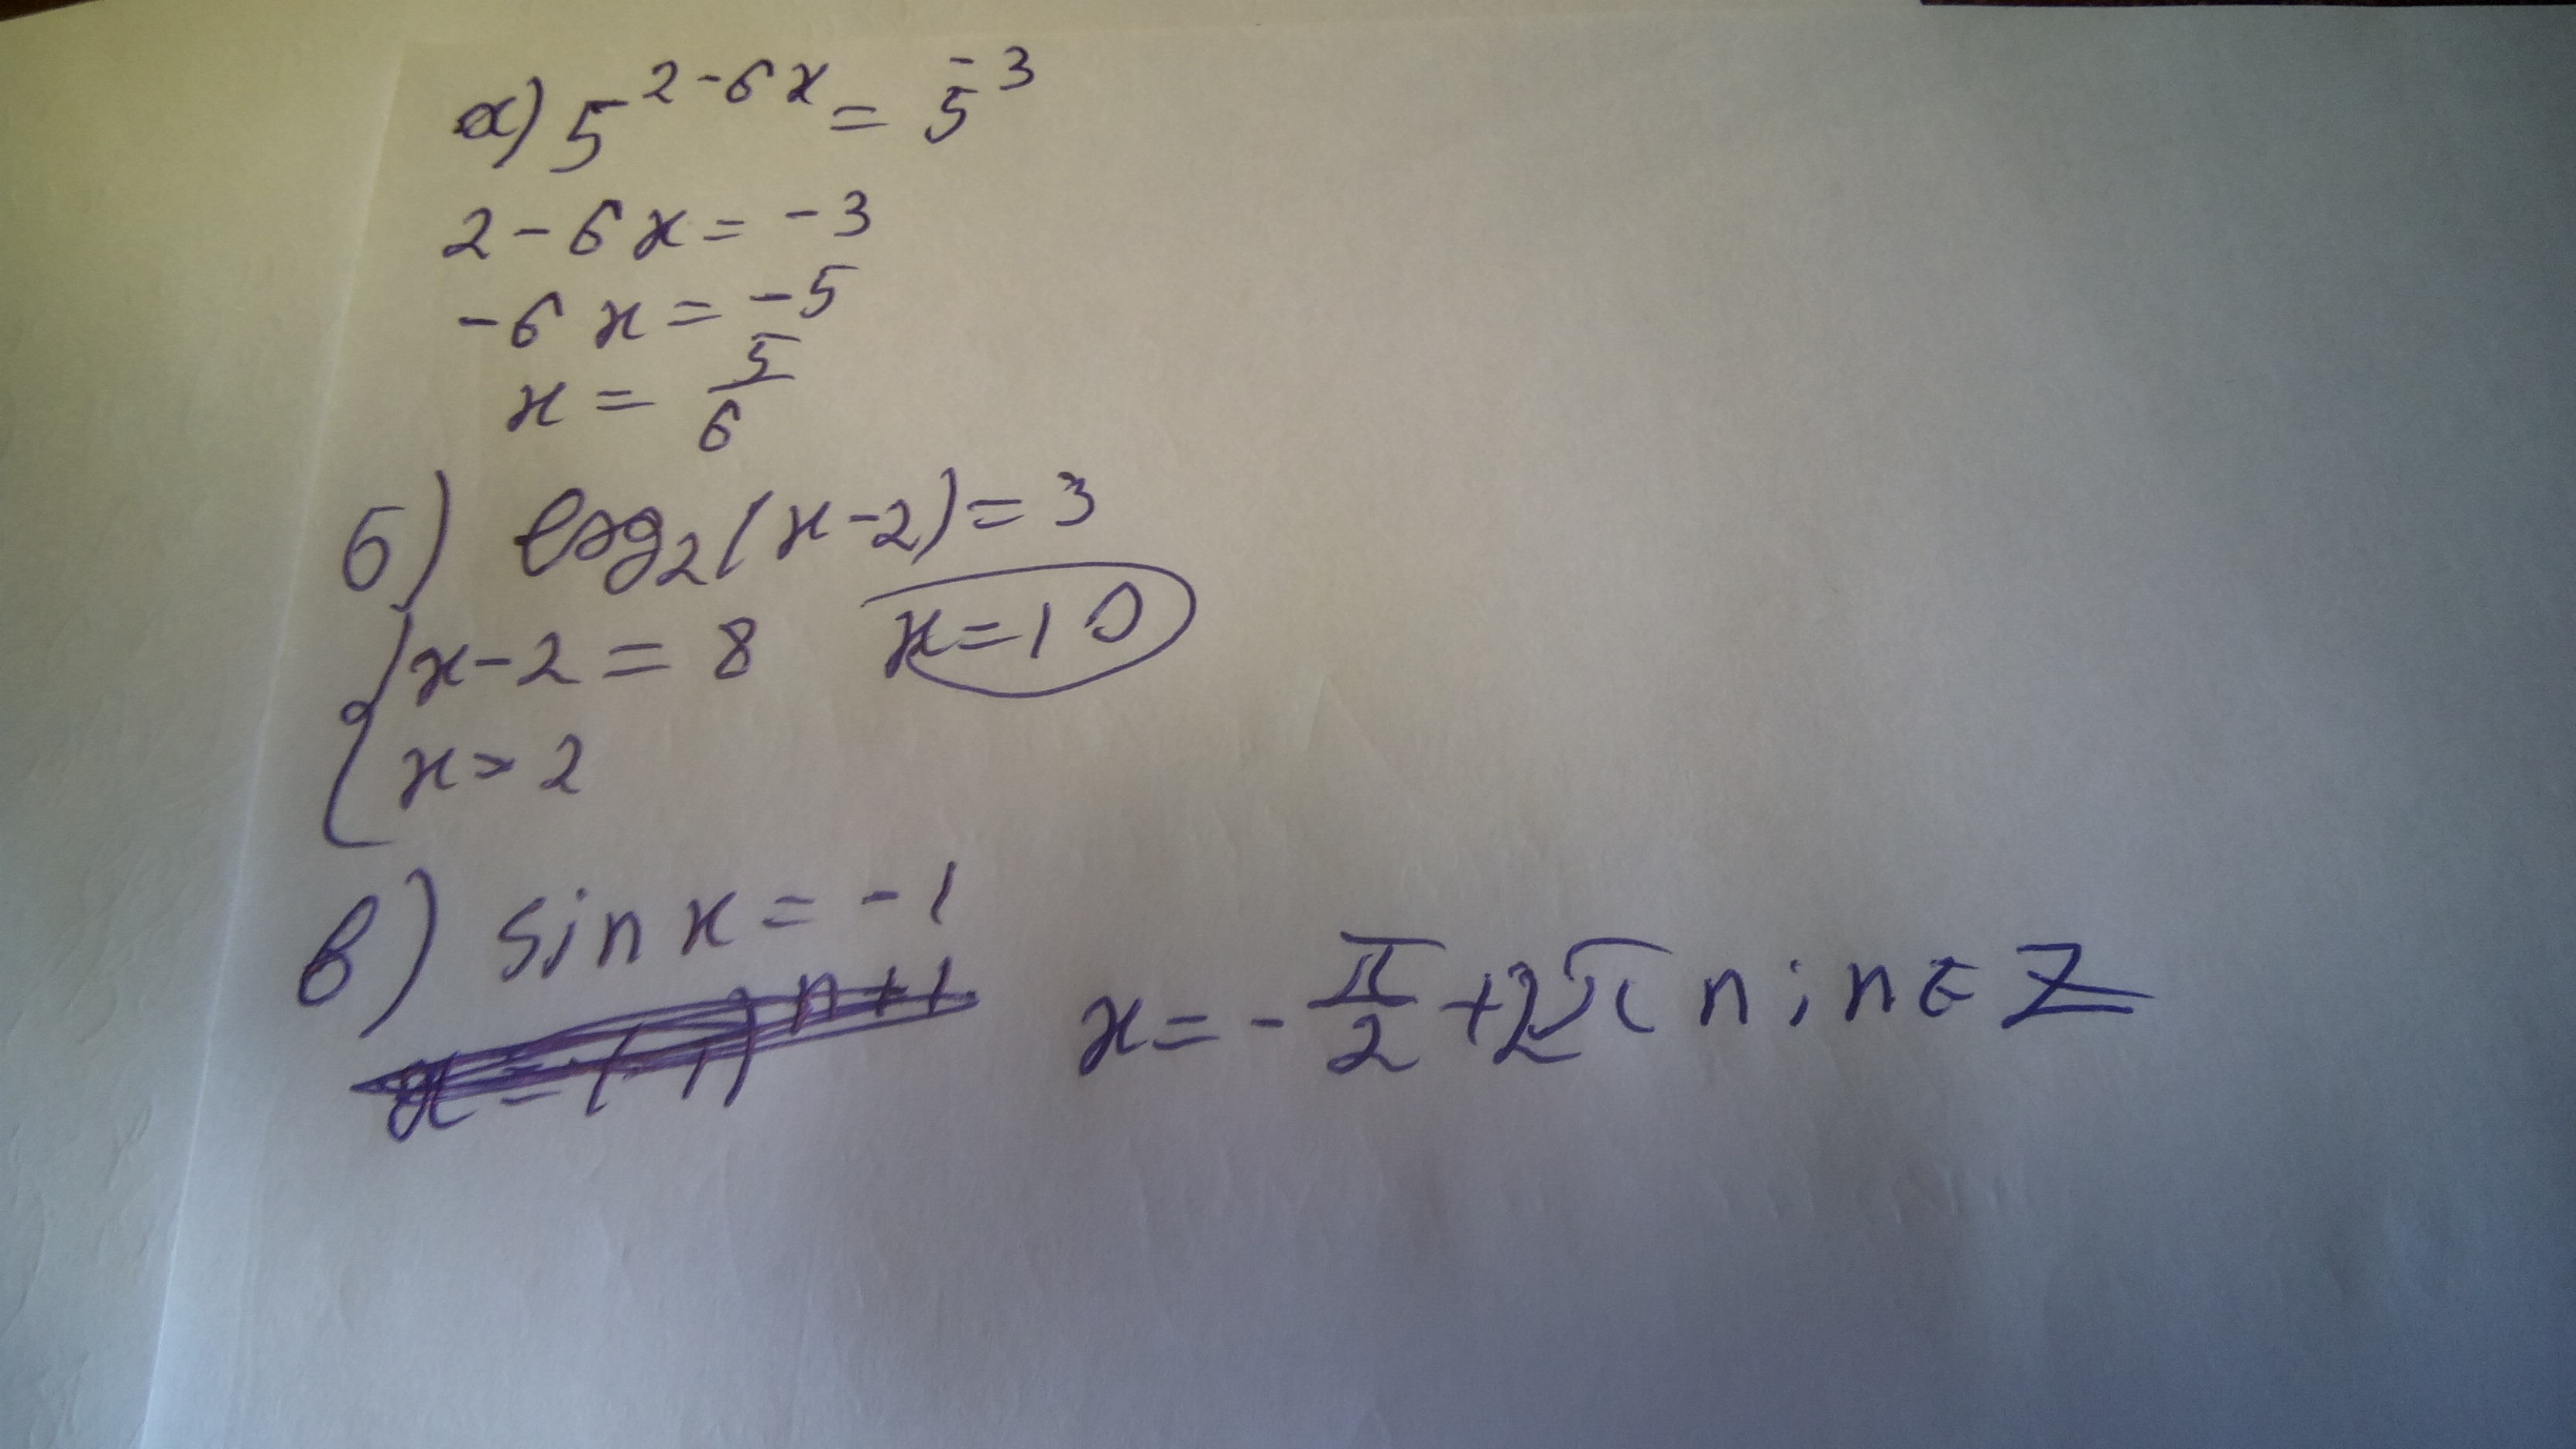 а) 5^{2-6x} = 5^{-3}
2-6x = -3
-6x = -5
x = \frac{5}{6}
б) log_2(x-2) = 3
{ x-2 = 8 x=10
x > 2
в) sin x = -1
x = (-1)^{n+1}
x = -\frac{π}{2} + 2πn; n ∈ Z